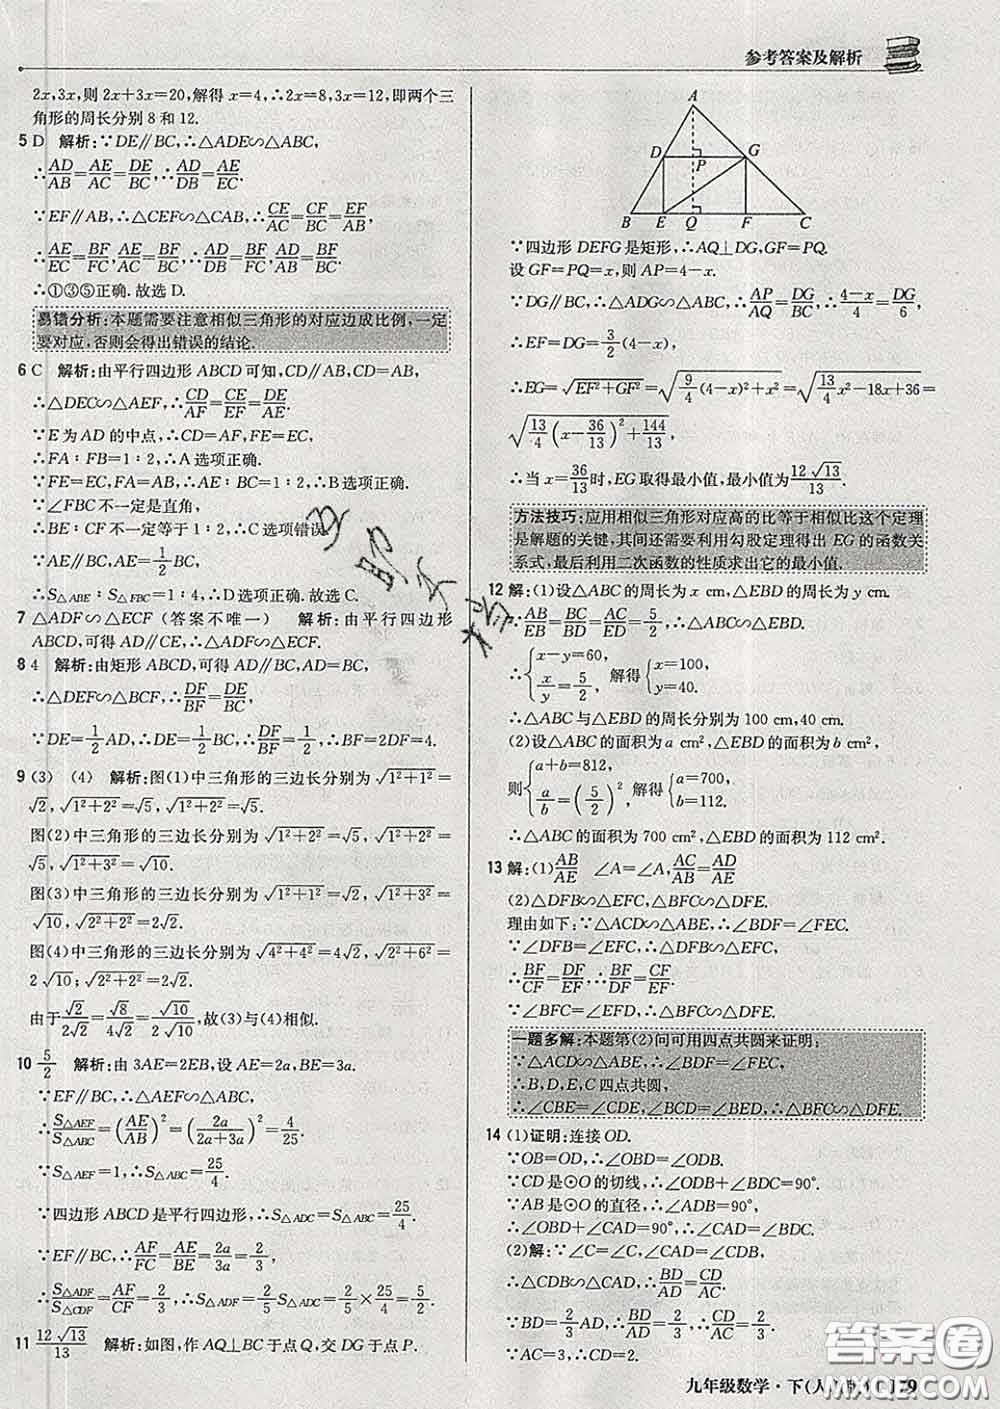 参考答案及解析
2x,3x,则 2x+3x=20,解得 x=4,∴2x=8,3x=12,即两个三
角形的周长分别 8 和 12.
5 D 解析:∵DE∥BC,∴△ADE∽△ABC,
∴AD/AB=AE/AC=DE/BC,∴AD/DB=AE/EC.
∵EF∥AB,∴△CEF∽△CAB,∴CE/AC=CF/BC=EF/AB,
∴AE/EC=BF/FC,AE/AC=BF/BC,∴AD/DB=BF/FC,AD/AB=BF/BC,
∴①③⑤正确.故选 D.
易错分析:本题需要注意相似三角形的对应边成比例,一定
要对应,否则会得出错误的结论.
6 C 解析:由平行四边形 ABCD 可知,CD∥AB,CD=AB,
∴△DEC∽△AEF,∴CD/AF=CE/EF=DE/AE.
∵E 为 AD 的中点,∴CD=AF,FE=EC,
∴FA∶FB=1∶2,∴A 选项正确.
∵FE=EC,FA=AB,∴AE∶BC=1∶2,∴B 选项正确.
∵∠FBC 不一定是直角,
∴BE∶CF 不一定等于 1∶2,∴C 选项错误.
∵AE∥BC,AE=1/2BC,
∴S△ABE∶S△FBC=1∶4,∴D 选项正确.故选 C.
7 △ADF∽△ECF (答案不唯一) 解析:由平行四边形
ABCD,可得 AD∥CE,∴△ADF∽△ECF.
8 4 解析:由矩形 ABCD,可得 AD∥BC,AD=BC,
∴△DEF∽△BCF,∴DF/BF=DE/BC,
∵DE=1/2AD,∴DE=1/2BC,∴DF/BF=1/2,∴BF=2DF=4.
9 (3) (4) 解析:图(1)中三角形的三边长分别为 √(1²+1²)=
√2,√(1²+2²)=√5,√(1²+2²)=√5.
图(2)中三角形的三边长分别为 √(1²+2²)=√5,√(1²+2²)=
√5,√(1²+3²)=√10.
图(3)中三角形的三边长分别为 √(1²+1²)=√2,√(1²+3²)=
√10,√(2²+2²)=2√2.
图(4)中三角形的三边长分别为 √(4²+4²)=4√2,√(2²+6²)=
2√10;√(2²+2²)=2√2.
由于√2/2√2=√8/4√2=√10/2√10,故(3)与(4)相似.
10 5/2 解析:由 3AE=2EB,设 AE=2a,BE=3a.
∵EF∥BC,∴△AEF∽△ABC,
∴S△AEF/S△ABC=(AE/AB)²=(2a/2a+3a)²=4/25.
∵S△AEF=1,∴S△ABC=25/4.
∵四边形 ABCD 是平行四边形,∴S△ADC=S△ABC=25/4.
∵EF∥BC,∴AF/FC=AE/BE=2a/3a=2/3,
∴S△ADF/S△CDF=AF/CF=2/3,∴S△ADF=2/5S△ADC=2/5×25/4=5/2.
11 12√13/13 解析:如图,作 AQ⊥BC 于点 Q,交 DG 于点 P.
A
D P G
B E Q F C
∵四边形 DEFG 是矩形,∴AQ⊥DG,GF=PQ.
设 GF=PQ=x,则 AP=4−x.
∵DG∥BC,∴△ADG∽△ABC,∴AP/AQ=DG/BC,∴4−x/4=DG/6,
∴EF=DG=3/2(4−x),
∴EG=√(EF²+GF²)=√(9/4(4−x)²+x²)=√(13/4x²−18x+36)=
√(13/4(x−36/13)²+144/13),
∴当 x=36/13时,EG 取得最小值,最小值为12√13/13.
方法技巧:应用相似三角形对应高的比等于相似比这个定理
是解题的关键,其间还需要利用勾股定理得出 EG 的函数关
系式,最后利用二次函数的性质求出它的最小值.
12 解:(1)设△ABC 的周长为 x cm,△EBD 的周长为 y cm.
∵AB/EB=BC/BD=AC/ED=5/2,∴△ABC∽△EBD.
∴{x−y=60, x/y=5/2, 解得{x=100, y=40.
∴△ABC 与△EBD 的周长分别为 100 cm,40 cm.
(2)设△ABC 的面积为 a cm²,△EBD 的面积为 b cm²,
则{a+b=812, a/b=(5/2)², 解得{a=700, b=112.
∴△ABC 的面积为 700 cm²,△EBD 的面积为 112 cm².
13 解:(1)AB/AE ∠A=∠A,AC/AB=AD/AE
(2)△DFB∽△EFC,△BFC∽△DFE.
理由如下:∵△ACD∽△ABE,∴∠BDF=∠FEC.
∵∠DFB=∠EFC,∴△DFB∽△EFC,
∴BF/CF=DF/EF,∴BF/DF=CF/EF.
∵∠BFC=∠DFE,∴△BFC∽△DFE.
一题多解:本题第(2)问可用四点共圆来证明;
∵△ACD∽△ABE,∴∠BDF=∠FEC,
∴B,D,E,C 四点共圆,
∴∠CBE=∠CDE,∠BCD=∠BED,∴△BFC∽△DFE.
14 (1)证明:连接 OD.
∵OB=OD,∴∠OBD=∠ODB.
∵CD 是⊙O 的切线,∴∠ODB+∠BDC=90°.
∵AB 是⊙O 的直径,∴∠ADB=90°,
∴∠OBD+∠CAD=90°,∴∠CAD=∠BDC.
(2)解:∵∠C=∠C,∠CAD=∠CDB,
∴△CDB∽△CAD,∴BD/AD=CD/AC.
∵BD=2/3AD,∴BD/AD=2/3,∴CD/AC=2/3.
∵AC=3,∴CD=2.
九年级数学·下(人
答案圈